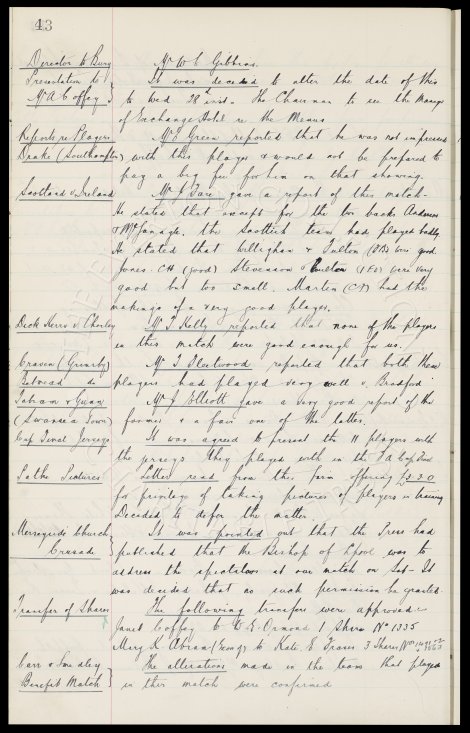 43
Director to Bury Mr W C Gibbins.
Presentation to It was decided to alter the date of this
Mr A Coffey to Wed 28th inst. The Chairman to see the Manager
of Exchange Hotel re the Menus
Reports re Players Mr Green reported that he was not impressed
Drake (Southampton) with this player & would not be prepared to
pay a big fee for him on that showing.
Scotland v. Ireland Mr J gave a report of this match.
He stated that except for the two backs Anderson
& McGonagle, the Scottish team had played badly.
He stated that & Fulton (OB) were good.
Jones CH (good) Stevenson & (IFO) were very
good but too small. Martin (CF) had the
makings of a very good player.
Dick Kerrs v. Chorley Mr T Kelly reported that none of the players
in this match were good enough for us.
Craven (Grimsby) Mr T Fleetwood reported that both these
Betmead do players had played very well v. Bradford
& Mr J Elliott gave a very good report of the
(Swansea Town) former & a fair one of the latter.
Cup Final Jerseys It was agreed to present the 11 players with
the jerseys they played with in the FA Cup Final
Pathe Pictures Letter read from this firm offering £3.3.0
for privilege of taking pictures of players in training
Decided to defer the matter.
Merseyside Church It was pointed out that the Press had
Crusade published that the Bishop of Lpool was to
address the spectators at our match on Sat. It
was decided that no such permission be granted.
Transfer of Shares The following transfers were approved:-
Janet Coffey to Ormond 1 Share No 1335
Mary K Abram to Kate E Fraser 3 Shares Nos
Carr & Smedley The alterations made in the team that played
Benefit Match in this match were confirmed